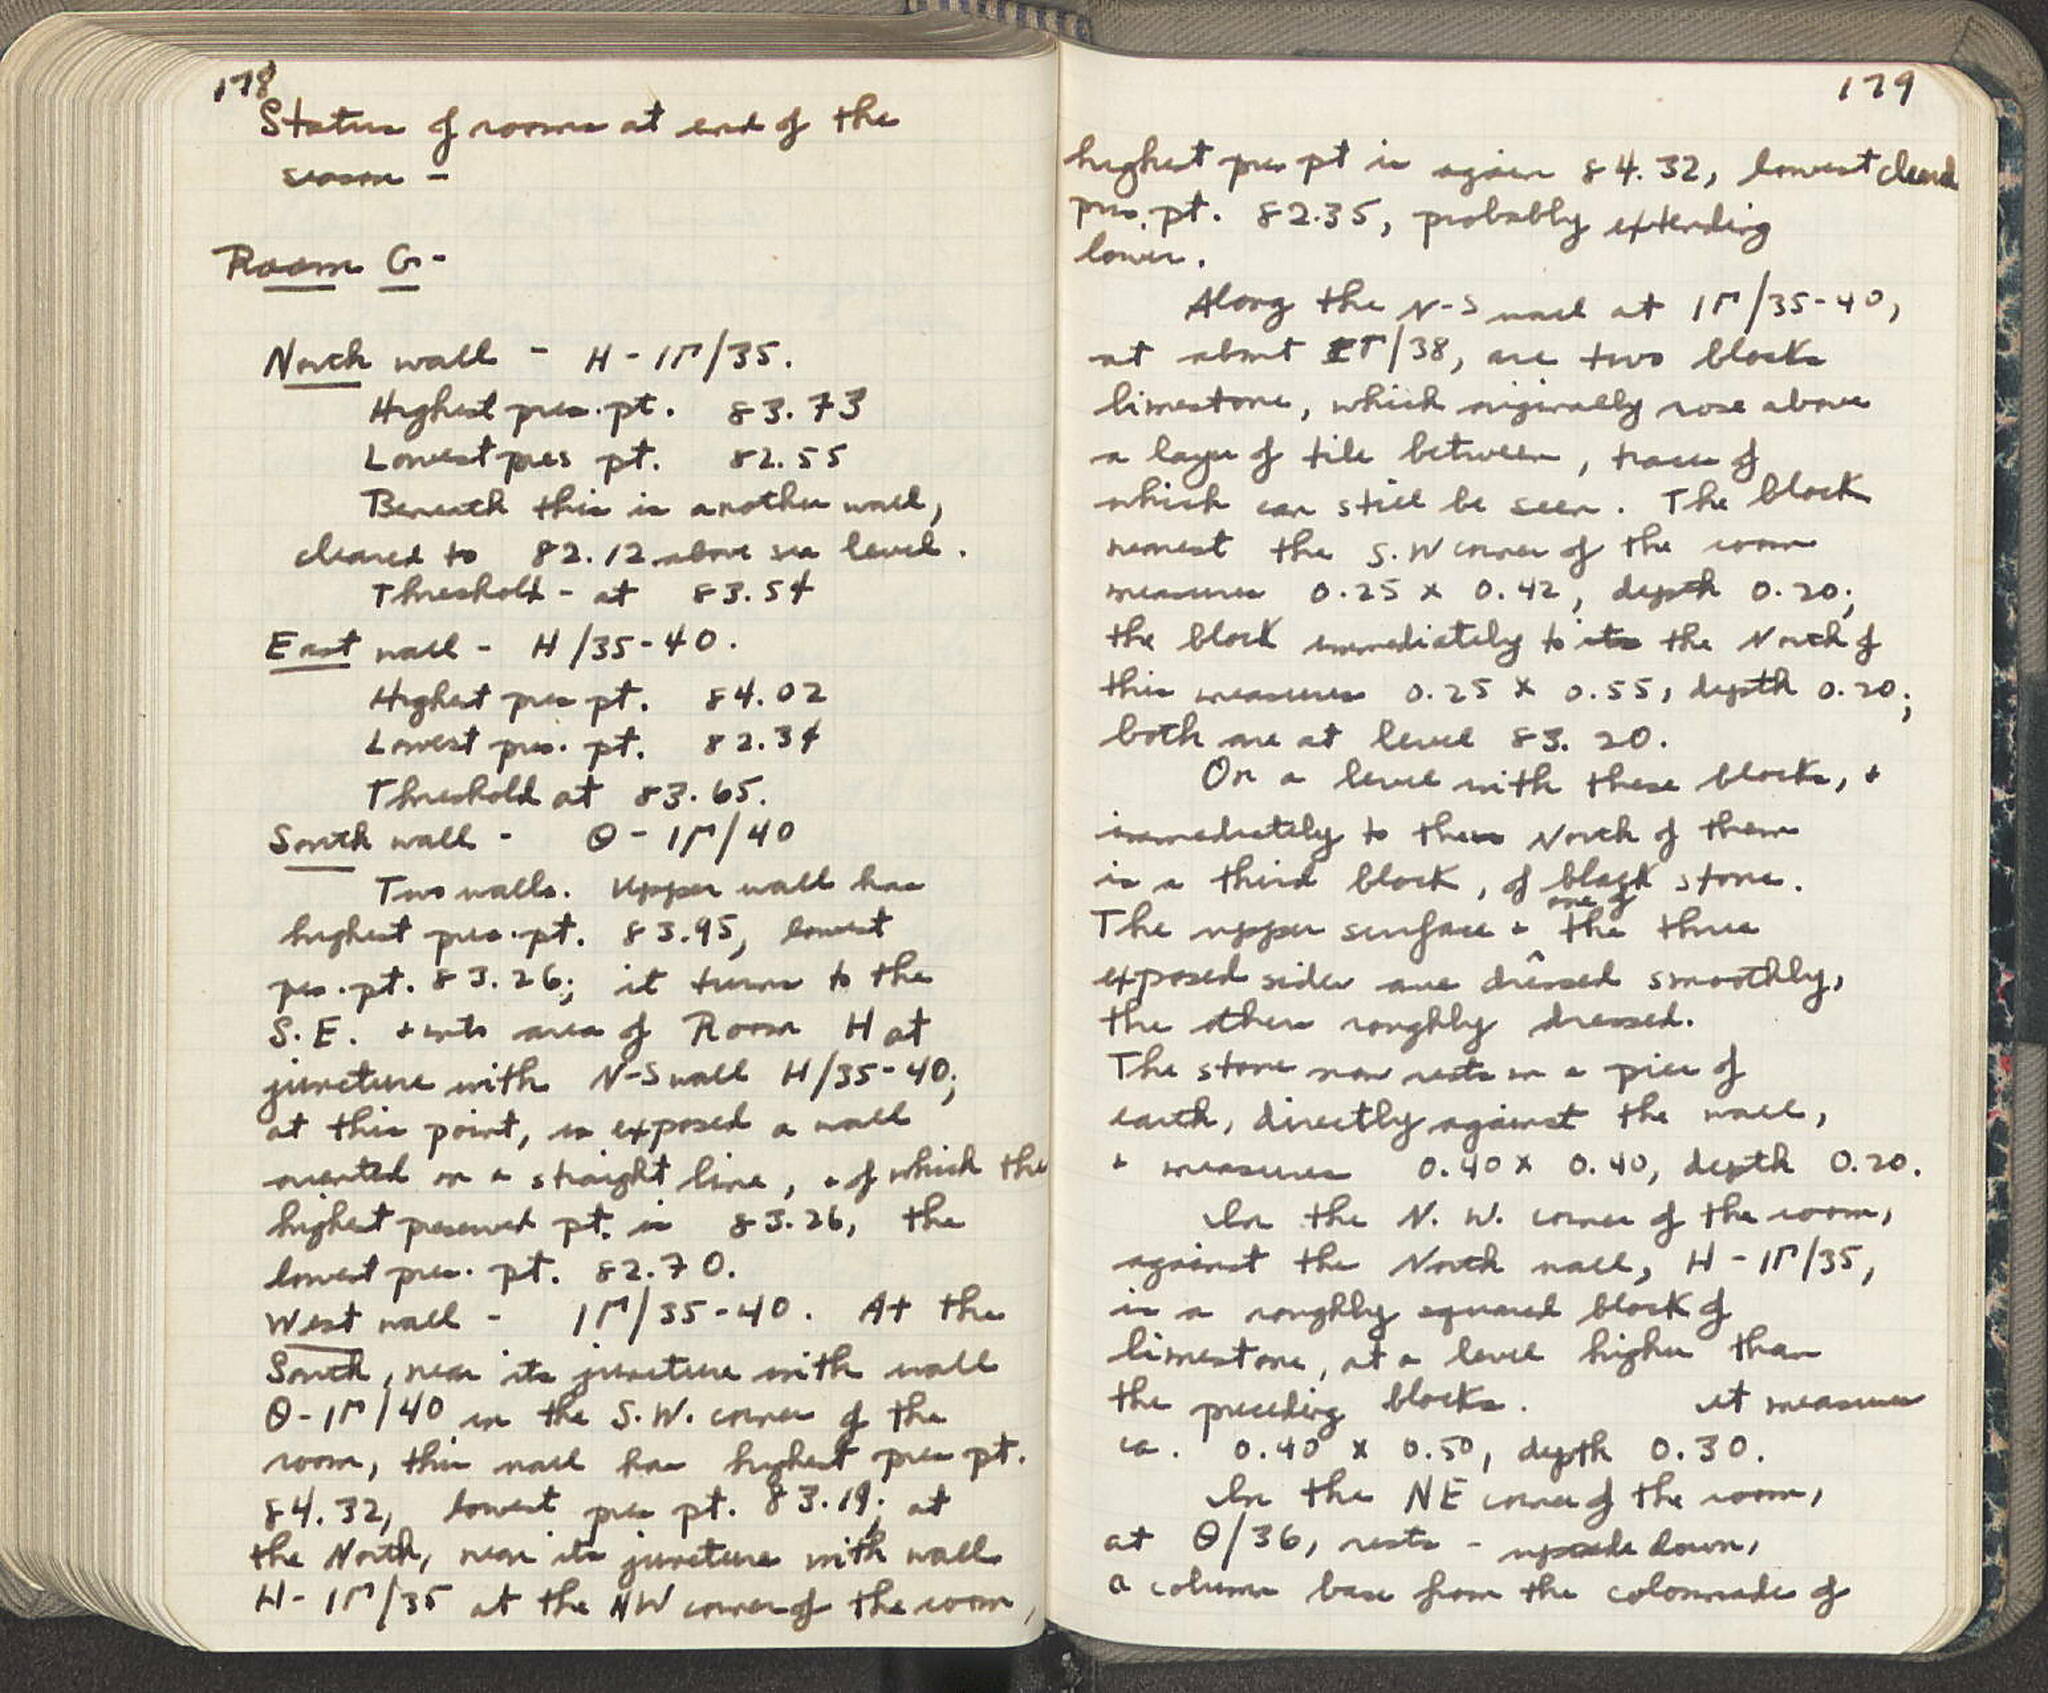 178
Status of rooms at end of the
season -
Room G -
North wall - H - ΙΓ/35.
Highest pres. pt. 83.73
Lowest pres pt. 82.55
Beneath this is another wall,
cleared to 82.12 above sea level.
Threshold - at 83.54
East wall - H/35-40.
Highest pres pt. 84.02
Lowest pres. pt. 82.34
Threshold at 83.65.
South wall - Θ - ΙΓ/40
Two walls. Upper wall has
highest pres. pt. 83.95, lowest
pres. pt. 83.26; it turns to the
S.E. + into area of Room H at
juncture with N-S wall H/35-40;
at this point, is exposed a wall
oriented on a straight line, + of which the
highest preserved pt. is 83.26, the
lowest pres. pt. 82.70.
West wall - ΙΓ/35-40. At the
South, near its juncture with wall
Θ-ΙΓ/40 in the S.W. corner of the
room, this wall has highest pres pt.
84.32, lowest pres pt. 83.19; at
the North, near its juncture with wall
H-ΙΓ/35 at the NW corner of the room,
179
highest pres pt is again 84.32, lowest cleared
pres. pt. 82.35, probably extending
lower.
Along the N-S wall at ΙΓ/35-40,
at about ΙΓ/38, are two blocks
limestone, which originally rose above
a layer of tile between, traces of
which can still be seen. The block
nearest the S.W corner of the room
measures 0.25 x 0.42, depth 0.20;
the block immediately to its the North of
this measures 0.25 x 0.55, depth 0.20;
both are at level 83.20.
On a level with these blocks, +
immediately to the North of them
is a third block, of black stone.
The upper surface + one of the three
exposed sides are dressed smoothly,
the others roughly dressed.
The stone now rests on a pier of
earth, directly against the wall,
+ measures 0.40 x 0.40, depth 0.20.
In the N.W. corner of the room,
against the North wall, H-ΙΓ/35,
is a roughly squared block of
limestone, at a level higher than
the preceding blocks. it measures
ca. 0.40 x 0.50, depth 0.30.
In the NE corner of the room,
at Θ/36, rests - upside down,
a column base from the colonnade of